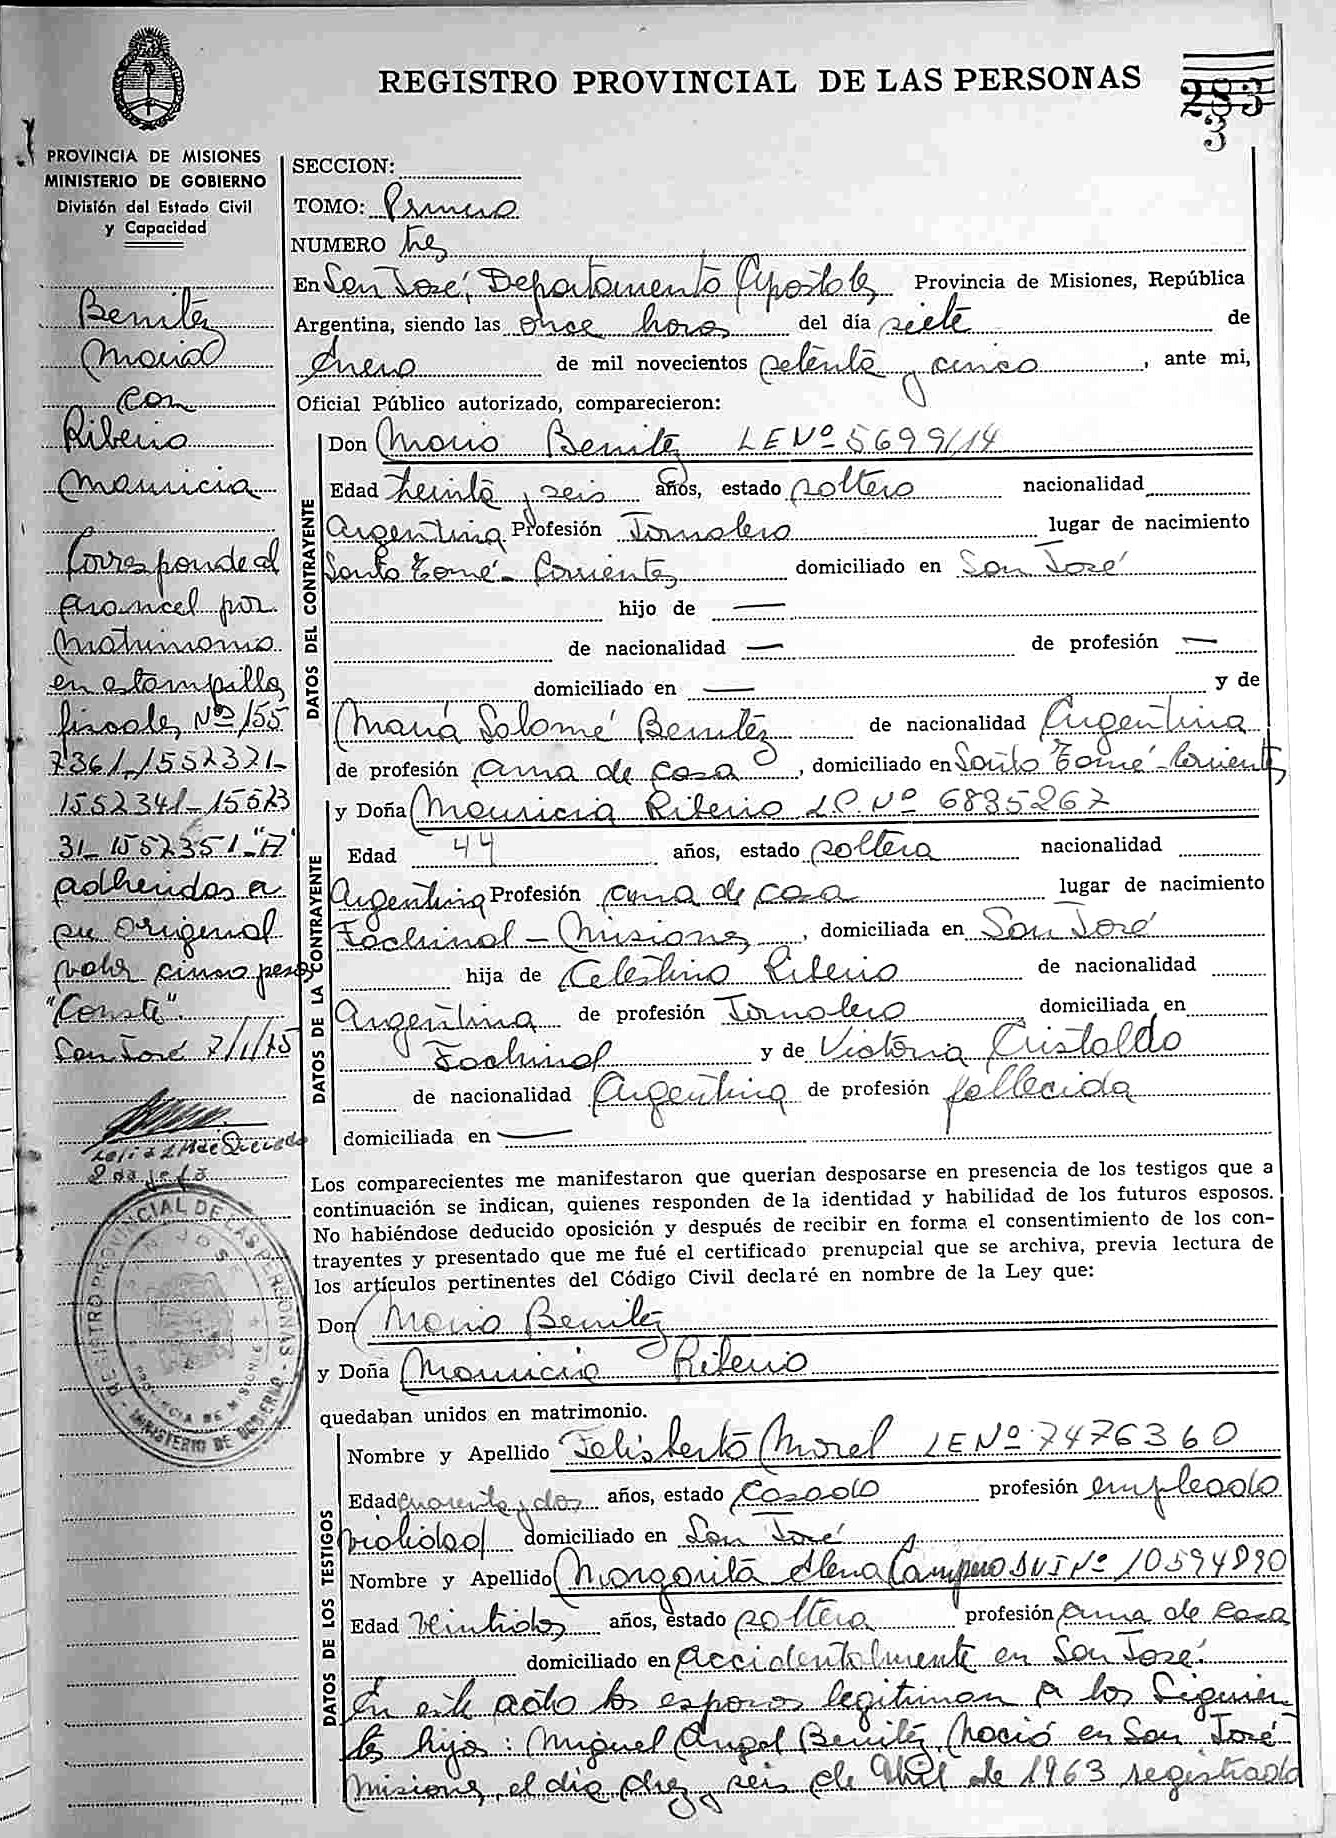 REGISTRO PROVINCIAL DE LAS PERSONAS
283
3
PROVINCIA DE MISIONES
MINISTERIO DE GOBIERNO
División del Estado Civil
y Capacidad
Benitez
Mario
con
Ribeiro
Mauricia
Corresponde al
arancel por
Matrimonio
en estampillas
fiscales Nos 155
2361-1552321-
1552341-15523
31-1552351-"A"
adheridas a
su original
valor cinco pesos
"Conste".
San José 7/1/75
REGISTRO PROVINCIAL DE LAS PERSONAS - MINISTERIO DE GOBIERNO
SAN JOSE
PROVINCIA DE MISIONES
SECCION:
TOMO: Primero
NUMERO tres
En San José, Departamento Apóstoles Provincia de Misiones, República
Argentina, siendo las once horas del día siete de
Enero de mil novecientos setenta y cinco, ante mi,
Oficial Público autorizado, comparecieron:
DATOS DEL CONTRAYENTE
Don Mario Benitez LE Nº 5699114
Edad treinta y seis años, estado soltero nacionalidad
Argentina Profesión Jornalero lugar de nacimiento
Santo Tomé - Corrientes domiciliado en San José
hijo de —
de nacionalidad — de profesión —
domiciliado en — y de
María Salomé Benitez de nacionalidad Argentina
de profesión ama de casa, domiciliado en Santo Tomé - Corrientes
DATOS DE LA CONTRAYENTE
y Doña Mauricia Ribeiro LC. Nº 6835267
Edad 44 años, estado soltera nacionalidad
Argentina Profesión ama de casa lugar de nacimiento
Fachinal - Misiones, domiciliada en San José
hija de Celestino Ribeiro de nacionalidad
Argentina de profesión Jornalero domiciliada en
Fachinal y de Victoria Cristaldo
de nacionalidad Argentina de profesión fallecida
domiciliada en —
Los comparecientes me manifestaron que querían desposarse en presencia de los testigos que a
continuación se indican, quienes responden de la identidad y habilidad de los futuros esposos.
No habiéndose deducido oposición y después de recibir en forma el consentimiento de los con-
trayentes y presentado que me fué el certificado prenupcial que se archiva, previa lectura de
los artículos pertinentes del Código Civil declaré en nombre de la Ley que:
Don Mario Benitez
y Doña Mauricia Ribeiro
quedaban unidos en matrimonio.
DATOS DE LOS TESTIGOS
Nombre y Apellido Felisberto Morel LE Nº 7476360
Edad cuarenta y dos años, estado Casado profesión empleado
vialidad domiciliado en San José
Nombre y Apellido Margarita Elena Campero DNI Nº 10594890
Edad Veintidos años, estado soltera profesión ama de casa
domiciliado en accidentalmente en San José.
En este acto los esposos legitiman a los siguien
tes hijos: Miguel Angel Benitez, Nació en San José
Misiones, el día diez y seis de Abril de 1963 registrado